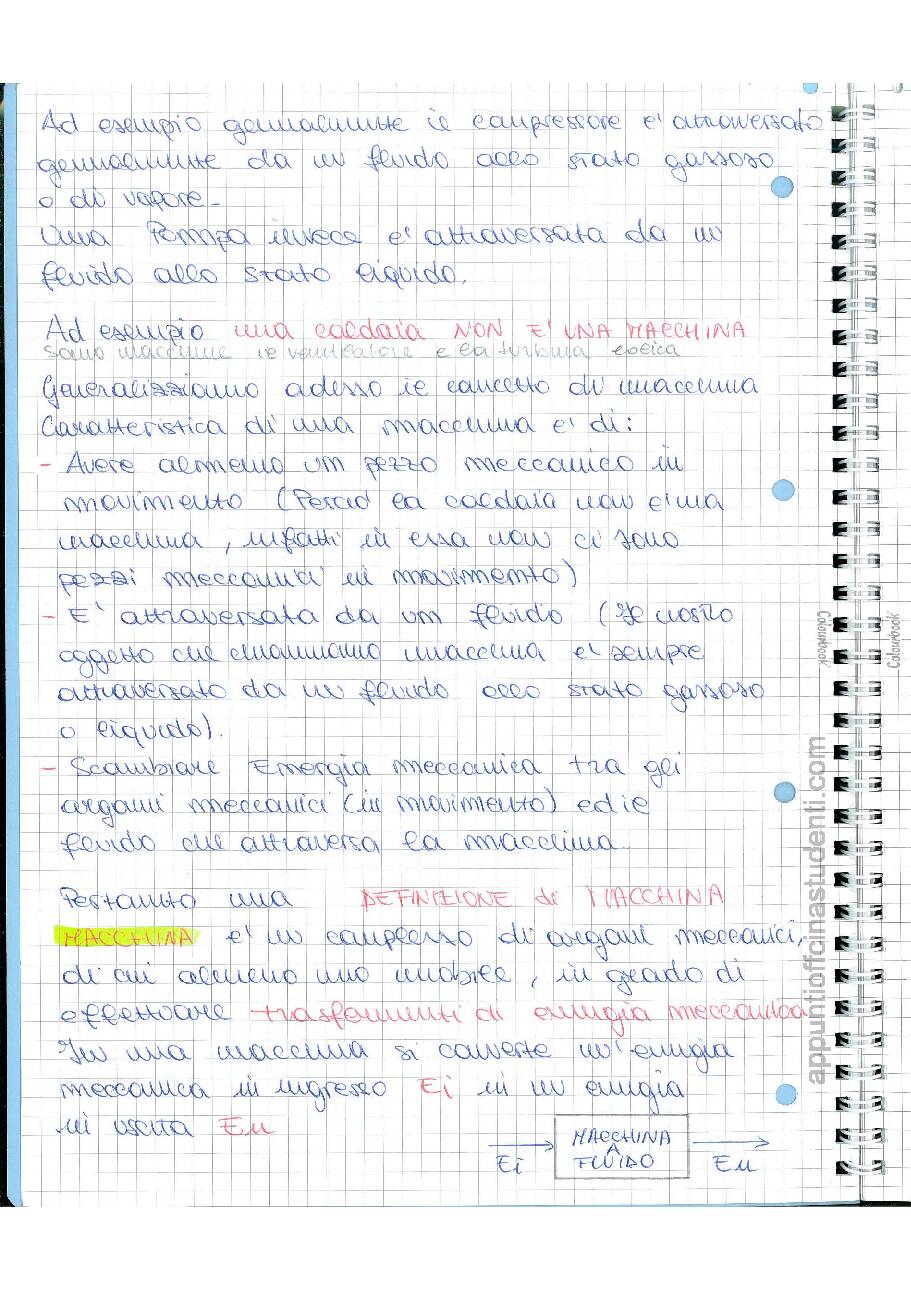 Ad esempio generalmente il compressore e' attraversato
generalmente da un fluido allo stato gassoso
o di vapore-
Una Pompa invece e' attraversata da un
fluido allo stato liquido.
Ad esempio una caldaia NON E' UNA MACCHINA
sono macchine il ventilatore e la turbina eolica
Generalizziamo adesso il concetto di macchina
Caratteristica di una macchina e' di:
- Avere almeno un pezzo meccanico in
movimento (Perciò la caldaia non e' una
macchina, infatti in essa non ci sono
pezzi meccanici in movimento)
- E' attraversata da un fluido (Il nostro
oggetto che chiamiamo macchina e' sempre
attraversato da un fluido allo stato gassoso
o liquido).
- Scambiare Energia meccanica tra gli
organi meccanici (in movimento) ed il
fluido che attraversa la macchina
Pertanto una DEFINIZIONE di MACCHINA
MACCHINA e' un complesso di organi meccanici,
di cui almeno uno mobile, in grado di
effettuare trasferimenti di energia meccanica
In una macchina si converte un'energia
meccanica in ingresso Ei in un energia
in uscita Eu
Ei MACCHINA A FLUIDO Eu
Colourbook
Colourbook
appuntiofficinastudenti.com